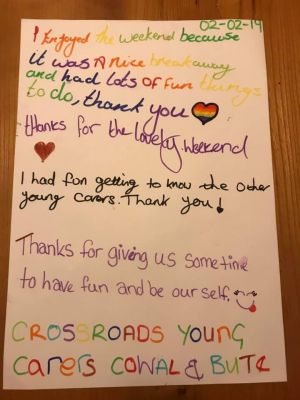 02-02-19
I Enjoyed the weekend because
it was A nice breakaway
and had lots of fun things
to do, thank you
thanks for the lovely weekend
I had fun getting to know the other
young carers. Thank you!
Thanks for giving us some time
to have fun and be our self.
CROSSROADS YOUNG
Carers COWAL & BUTE